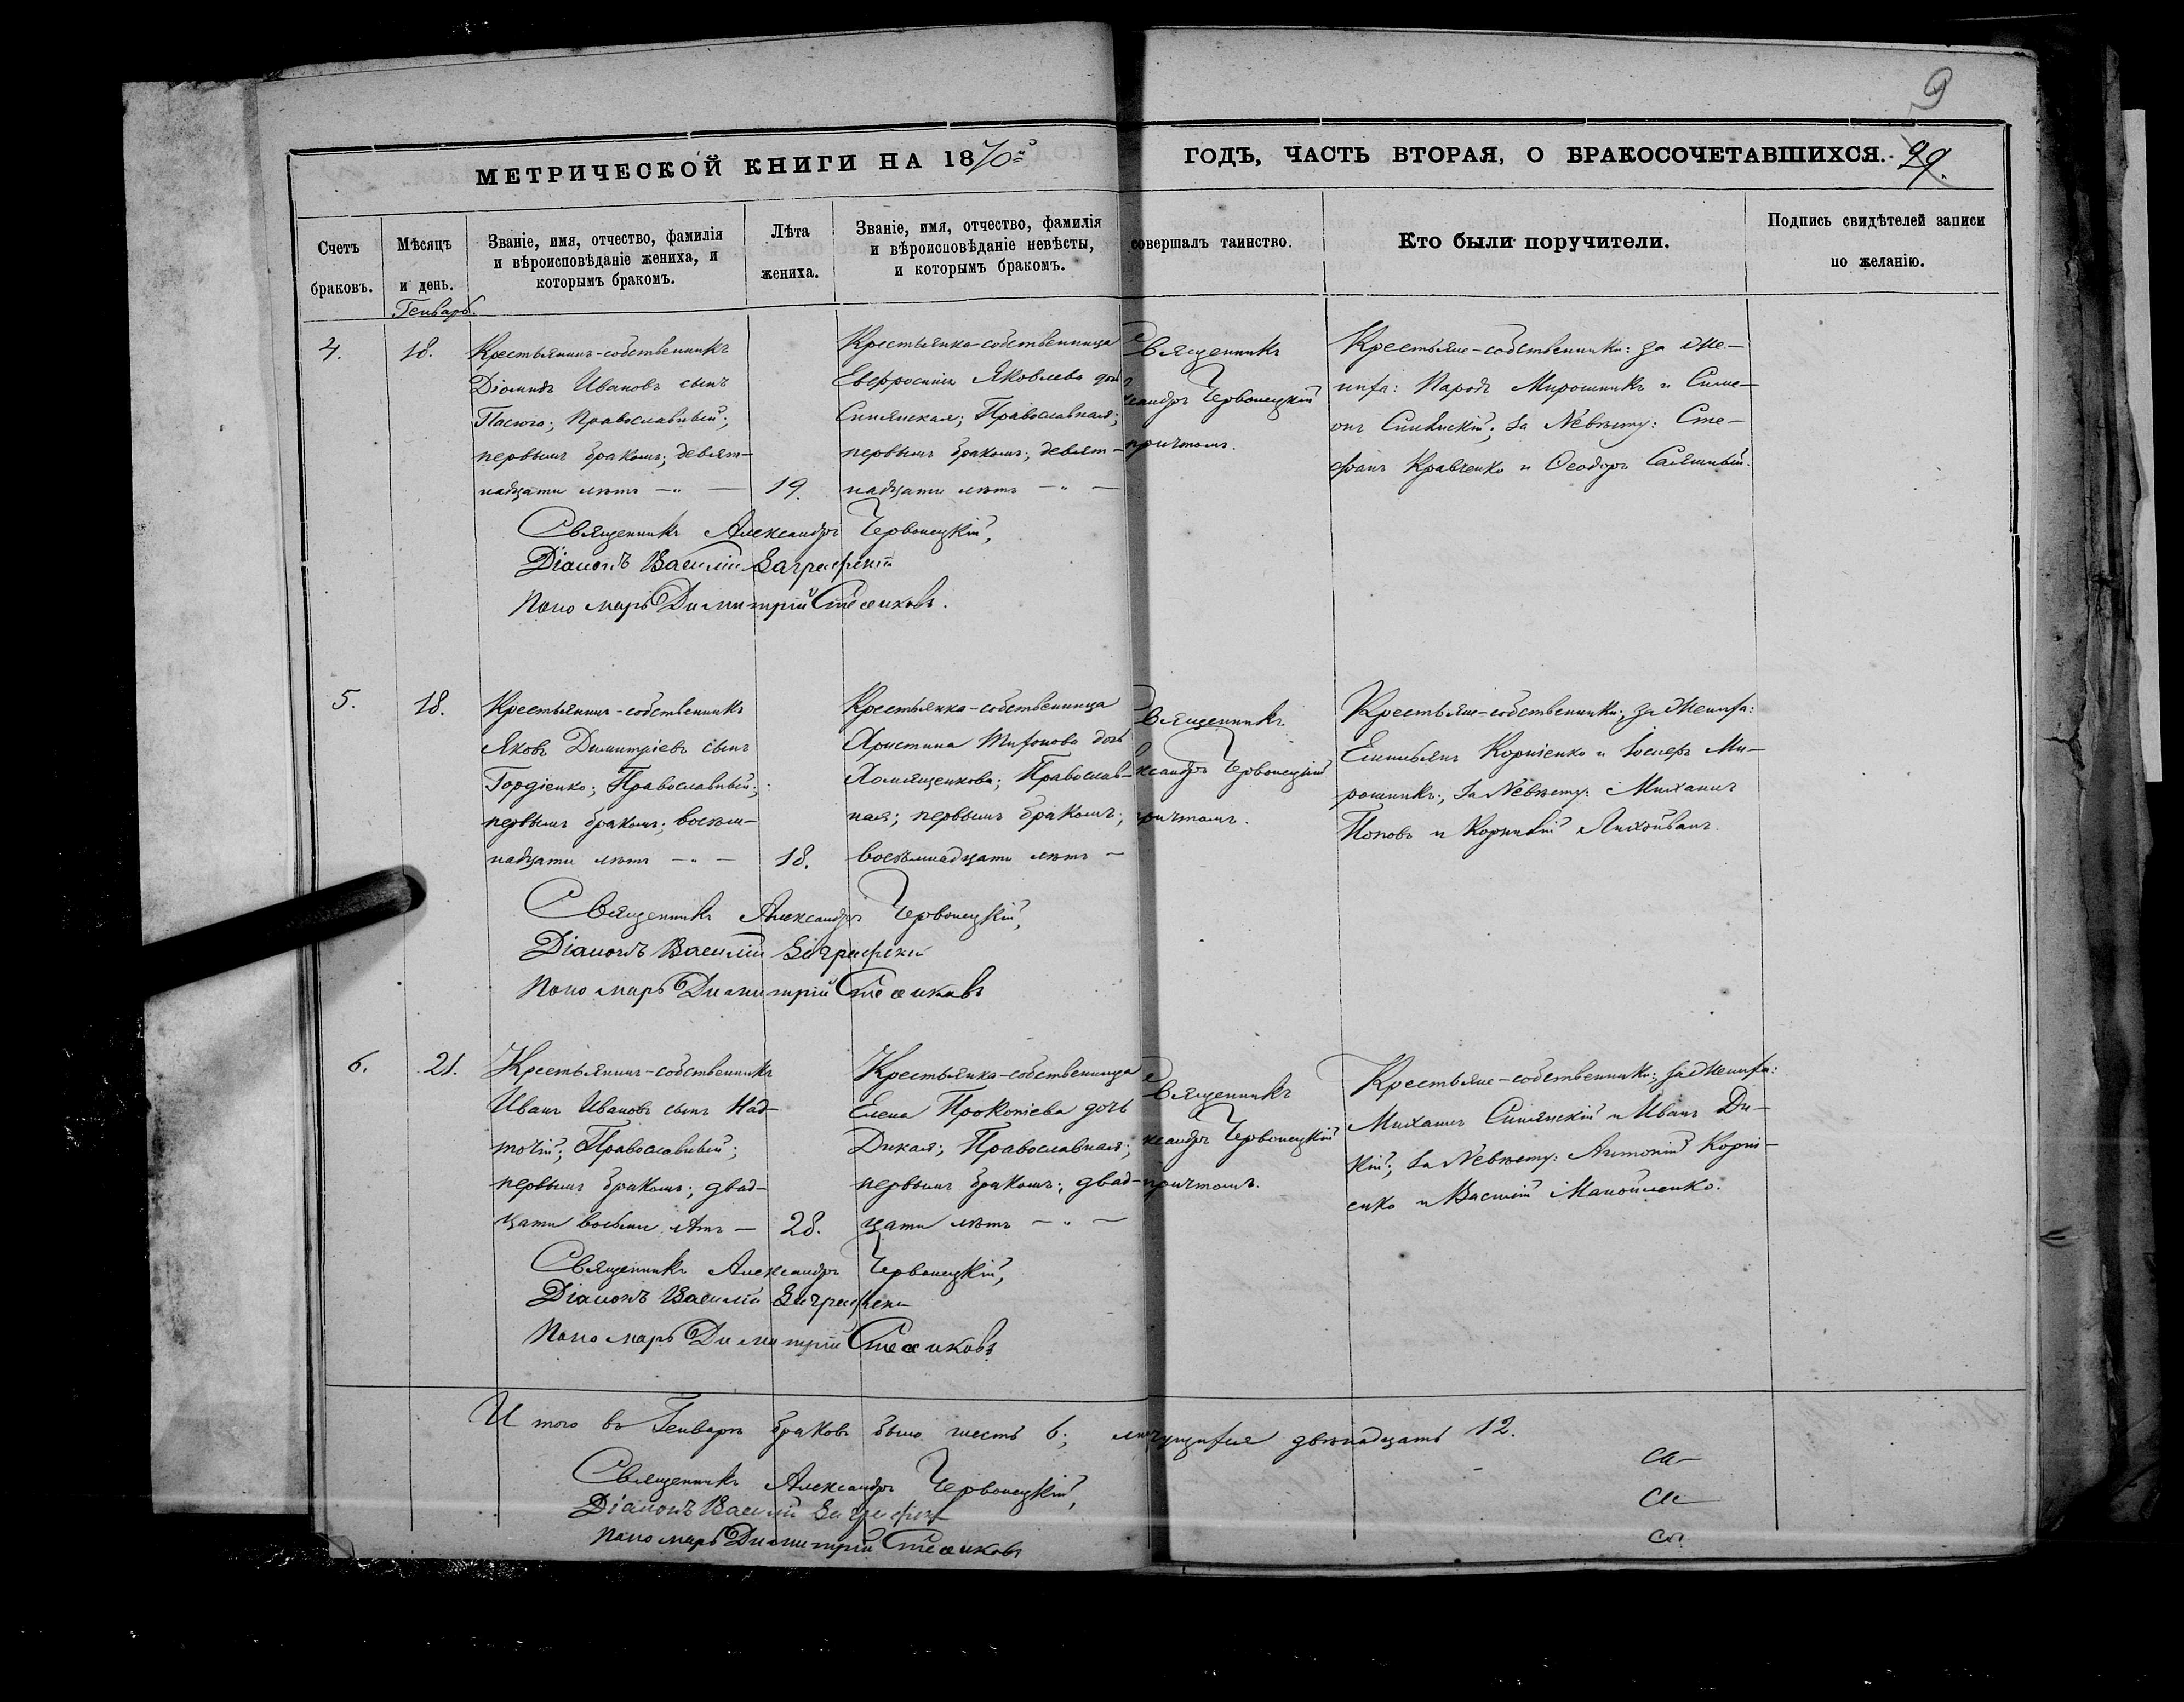 9
МЕТРИЧЕСКОЙ КНИГИ НА 1870й ГОДЪ, ЧАСТЬ ВТОРАЯ, О БРАКОСОЧЕТАВШИХСЯ.
Счетъ браковъ.
Мѣсяцъ и день.
Званіе, имя, отчество, фамилія
и вѣроисповѣданіе жениха, и
которымъ бракомъ.
Лѣта
жениха.
Званіе, имя, отчество, фамилія
и вѣроисповѣданіе невѣсты,
и которымъ бракомъ.
совершалъ таинство.
Кто были поручители.
Подпись свидѣтелей записи
по желанію.
Генварь.
4.
18.
Крестьянинъ-собственникъ
Діомидъ Ивановъ сынъ
Пасюга; Православный;
первымъ бракомъ; девят-
надцати лѣтъ —"—
19.
Крестьянка-собственница
Евфросинія Яковлева дочь
Синянская; Православная;
первымъ бракомъ; девят-
надцати лѣтъ —"—
Священникъ
ксандръ Червонецкій
причтомъ.
Крестьяне-собственники: за Же-
ниха: Мирошникъ и Симе-
онъ Синянскій; за Невѣсту: Сте-
фанъ Кравченко и Ѳеодоръ
Священникъ Александръ Червонецкій,
Діаконъ Василій
Пономарь Димитрій
5.
18.
Крестьянинъ-собственникъ
Яковъ Димитріевъ сынъ
Гордіенко; Православный;
первымъ бракомъ; восем-
надцати лѣтъ —"—
18.
Крестьянка-собственница
Христина Тихонова дочь
Хомященкова; Православ-
ная; первымъ бракомъ;
восемнадцати лѣтъ —
Священникъ
ксандръ Червонецкій
причтомъ.
Крестьяне-собственники; за Жениха:
Емиліянъ Корніенко и Іосифъ Ми-
рошникъ; за Невѣсту: Михаилъ
Поповъ и Корнилій
Священникъ Александръ Червонецкій,
Діаконъ Василій
Пономарь Димитрій
6.
21.
Крестьянинъ-собственникъ
Иванъ Ивановъ сынъ Над-
точій; Православный;
первымъ бракомъ; двад-
цати восьми лѣтъ —
28.
Крестьянка-собственница
Елена Прокопіева дочь
Дикая; Православная;
первымъ бракомъ; двад-
цати лѣтъ —"—
Священникъ
ксандръ Червонецкій
причтомъ.
Крестьяне-собственники; за Жениха:
Михаилъ Синянскій и Иванъ Ди-
кій; за Невѣсту: Антоній Корні-
енко и Василій Манойленко.
Священникъ Александръ Червонецкій,
Діаконъ Василій
Пономарь Димитрій
Итого въ Генварѣ браковъ было шесть 6; двѣнадцать 12.
Священникъ Александръ Червонецкій,
Діаконъ Василій
Пономарь Димитрій